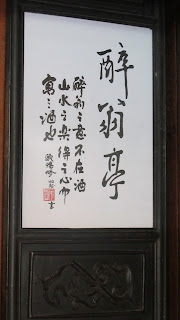 醉翁亭
醉翁之意不在酒
山水之樂得之心而
寓之酒也
歐陽修